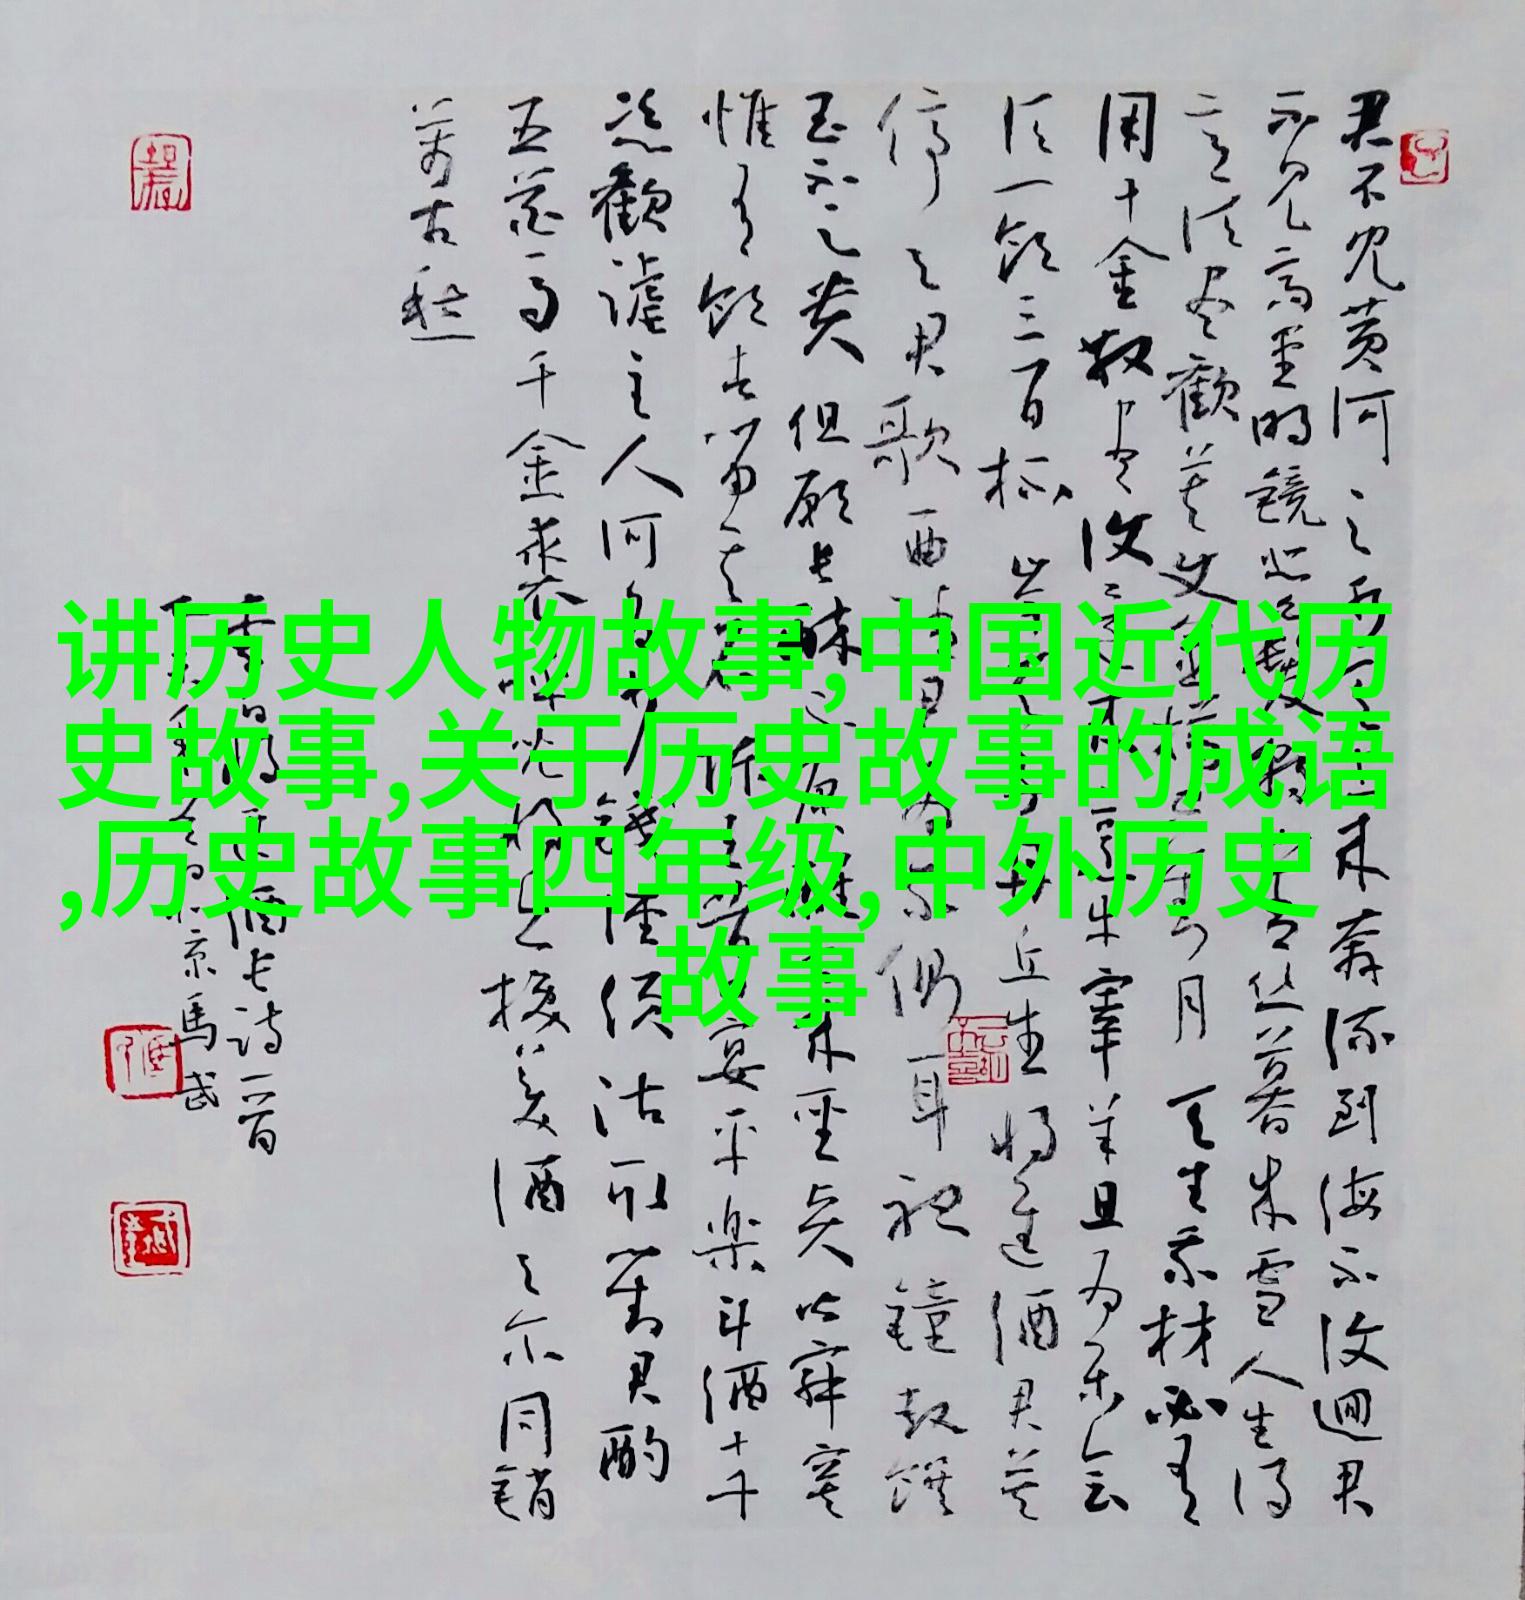 讲历史人物故事,中国近代历
史故事,关于历史故事的成语
,历史故事四年级,中外历史
故事
君不见黄河之水天上来奔流到海不復迴君
不见高堂明镜悲白髮朝如青丝暮成雪人生得
意须尽歡莫使金樽空對月天生我材必有
用千金散尽復還来烹牛宰羊且为乐会
须一飲三百杯岑夫子丹丘生将進酒君莫
停与君歌一曲请君为我侧耳聽鐘鼓饌
玉不足贵但願长醉不願醒古来圣贤皆寂寞
惟有飲者留其名陈王昔时宴平楽斗酒十千
恣歡谑主人何为言少錢径须沽取對君酌
五花马千金裘呼儿将出换美酒与尔同销
萬古愁
李白将进酒长诗一首
京馬武